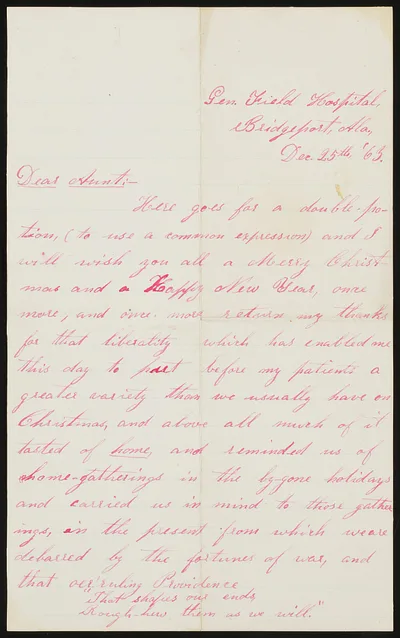 Gen. Field Hospital,
Bridgeport, Ala,
Dec. 25th, '63.
Dear Aunt:—
Here goes for a double-po-
tion, (to use a common expression) and I
will wish you all a Merry Christ-
mas and a Happy New Year, once
more, and once more return my thanks
for that liberality which has enabled me
this day to put before my patients a
greater variety than we usually have on
Christmas, and above all much of it
tasted of home, and reminded us of
home-gatherings in the by-gone holidays
and carried us in mind to those gather
ings, in the present from which we are
debarred by the fortunes of war, and
that over ruling Providence
"That shapes our ends
Rough-hew them as we will."